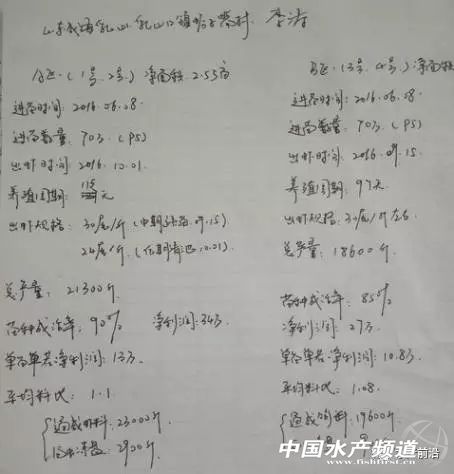 山东威海乳山 乳山口镇 李涛
A区.(1号.2号) 净面积 2.55亩
进苗时间: 2016.06.08
进苗数量: 70万.(P5)
出虾时间: 2016.10.01
养殖周期: 115天
出虾规格: 30尾/斤(中期 09.15)
24尾/斤.(后期清池.10.01)
总产量: 21300斤
苗种成活率: 90% 净利润: 34万
单亩单茬净利润: 13万.
平均料比: 1.1
通威虾料: 23000斤
2900斤
B区.(3号.4号) 净面积
进苗时间: 2016.06.08.
进苗数量: 70万.(P5)
出虾时间: 2016.09.15
养殖周期: 97天
出虾规格: 30尾/斤左右
总产量: 18600斤
苗种成活率: 85%
净利润: 27万
单亩单茬净利润: 10.8万
平均料比: 1.08.
通威虾料: 19600斤
中国水产频道
www.fishfirst.cn
前沿